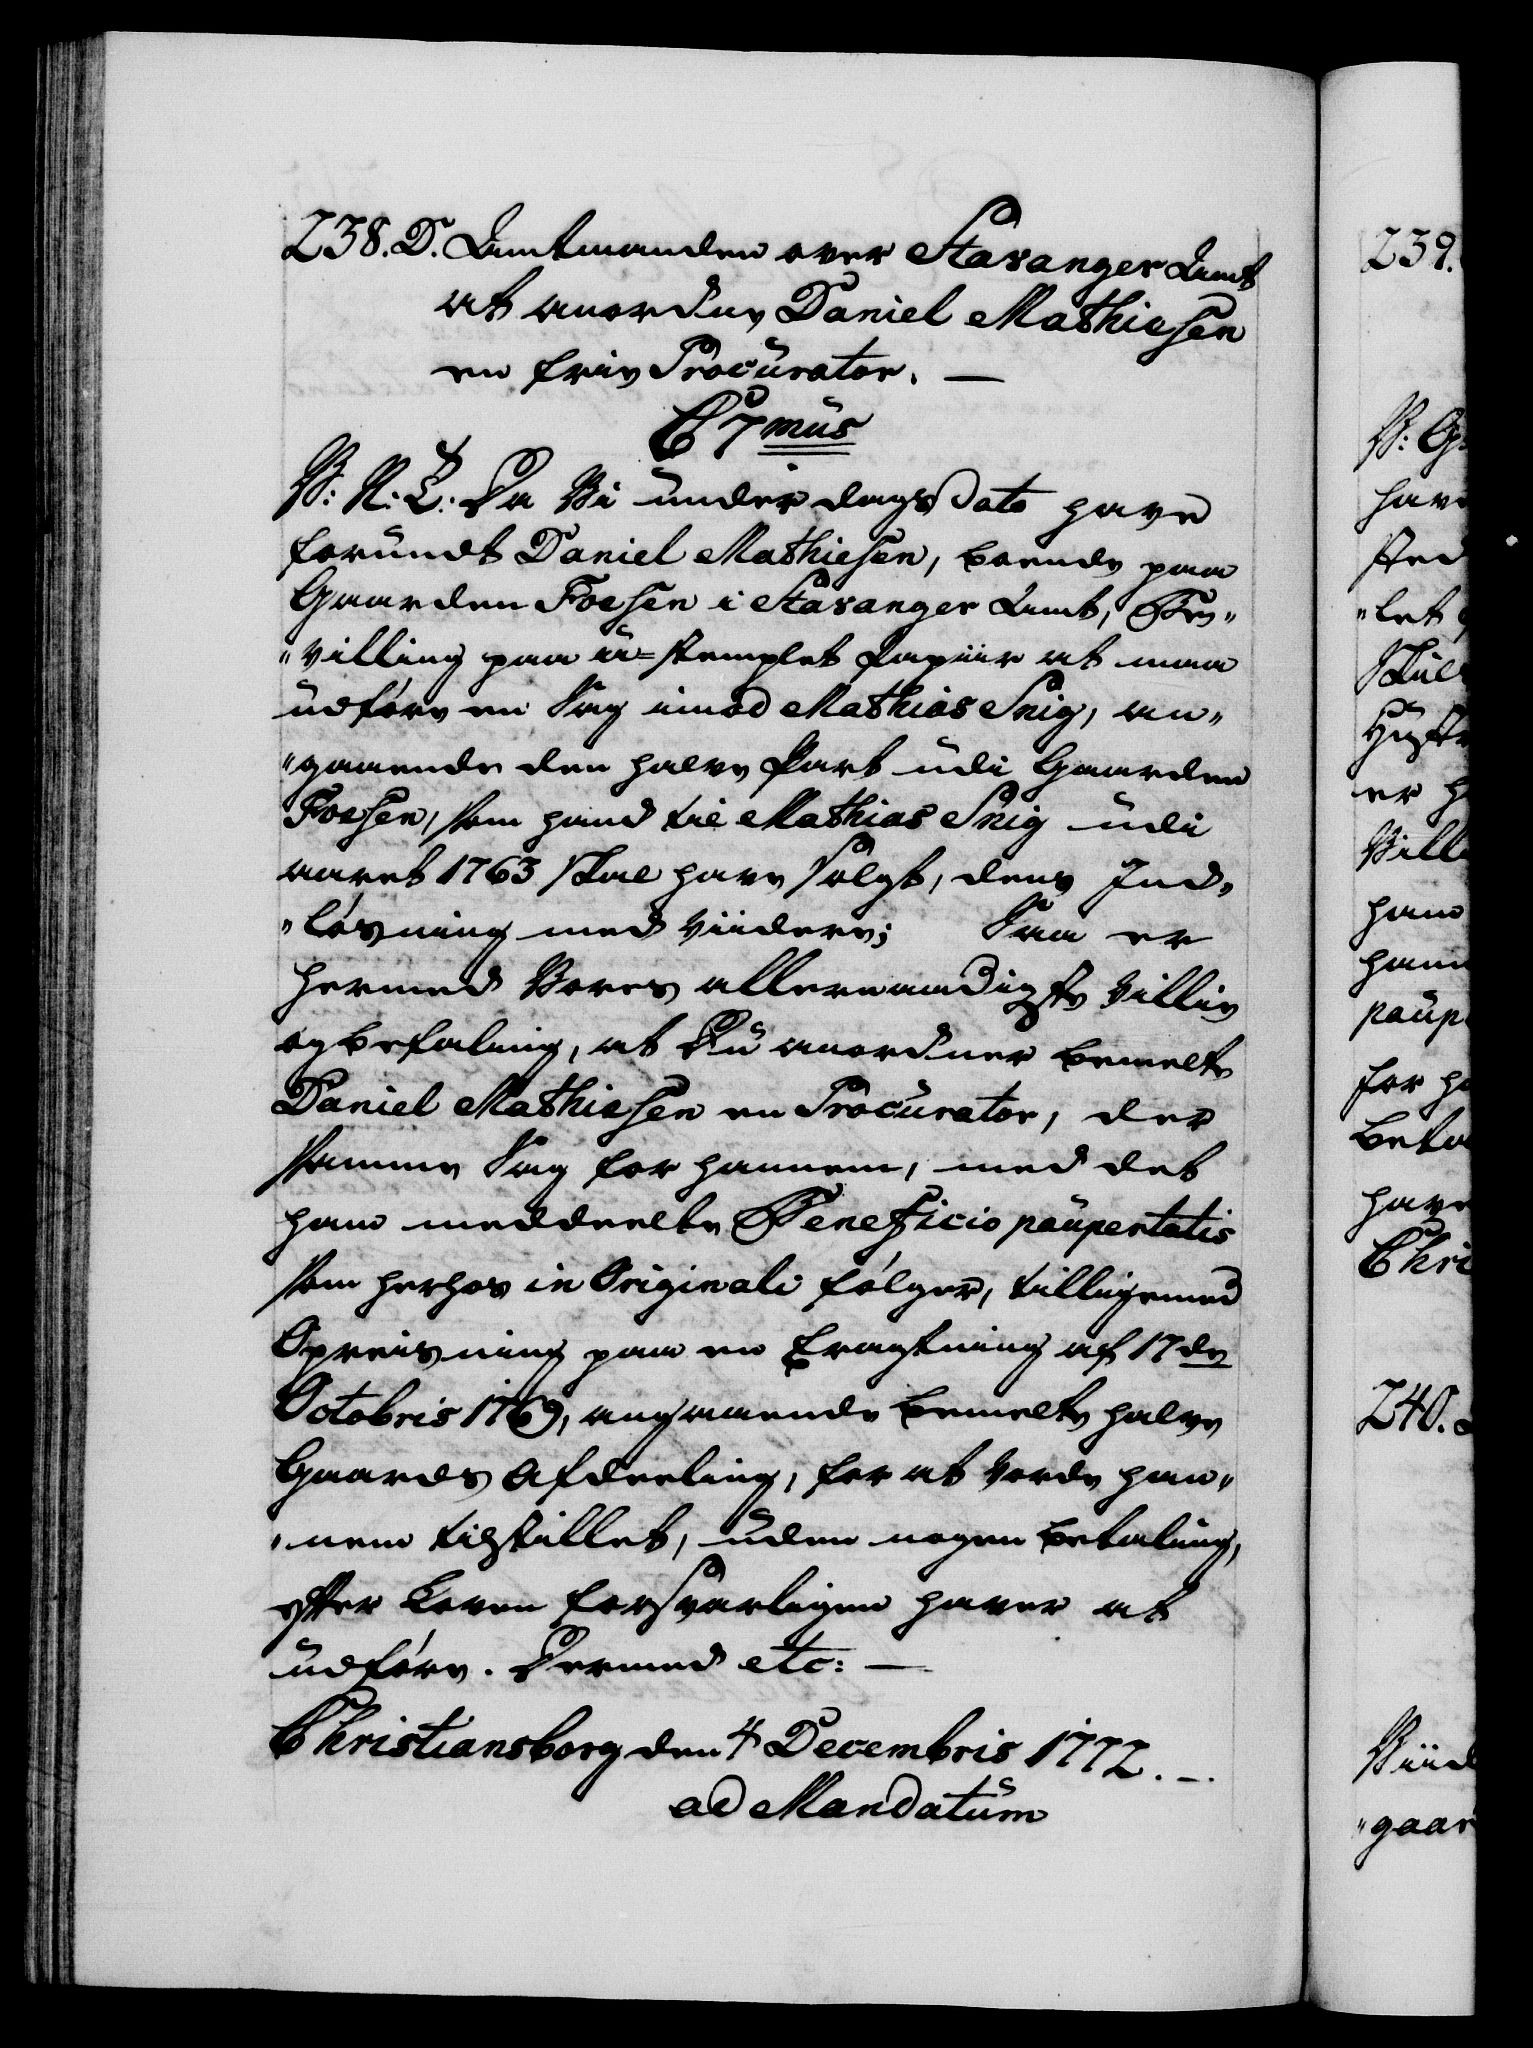 238. D. Amtmanden over Stavanger Amt
at anordne Daniel Mathiesen
en frie Procurator. —
C 7mus
V: N: T: Da Vi under dags Dato have
forundt Daniel Mathiesen, boende paa
Gaarden Foesen i Stavanger Amt, Be„
„villing paa u-stemplet Papiir at maa
udføre en Sag imod Mathias Snig, an„
„gaaende den halve Part udi Gaarden
Foesen, som hand til Mathias Snig udi
aaret 1763 skal have solgt, dens Ind„
„løsning med viidere; Saa er
hermed Vores allernaadigste Villie
og befaling, at Du anordner bemelte
Daniel Mathiesen en Procurator, der
samme Sag for hannem, med det
ham meddeelte Beneficio paupertatis
som herhos in Originali følger, tilligemed
Opreisning paa en Eragtning af 17de
Octobris 1769, angaaende bemelte halve
Gaards Afdeeling, for at vorde han„
„nem tilstillet, uden nogen betaling,
efter Loven forsvarligen haver at
udføre. Dermed etc: —
Christiansborg den 4 Decembris 1772. —
ad Mandatum
239.
V: G
have
sted
„let
Skul
er h
Ville
ham
ham
paup
for h
beta
have
Chri
240.
Viid
„gaar